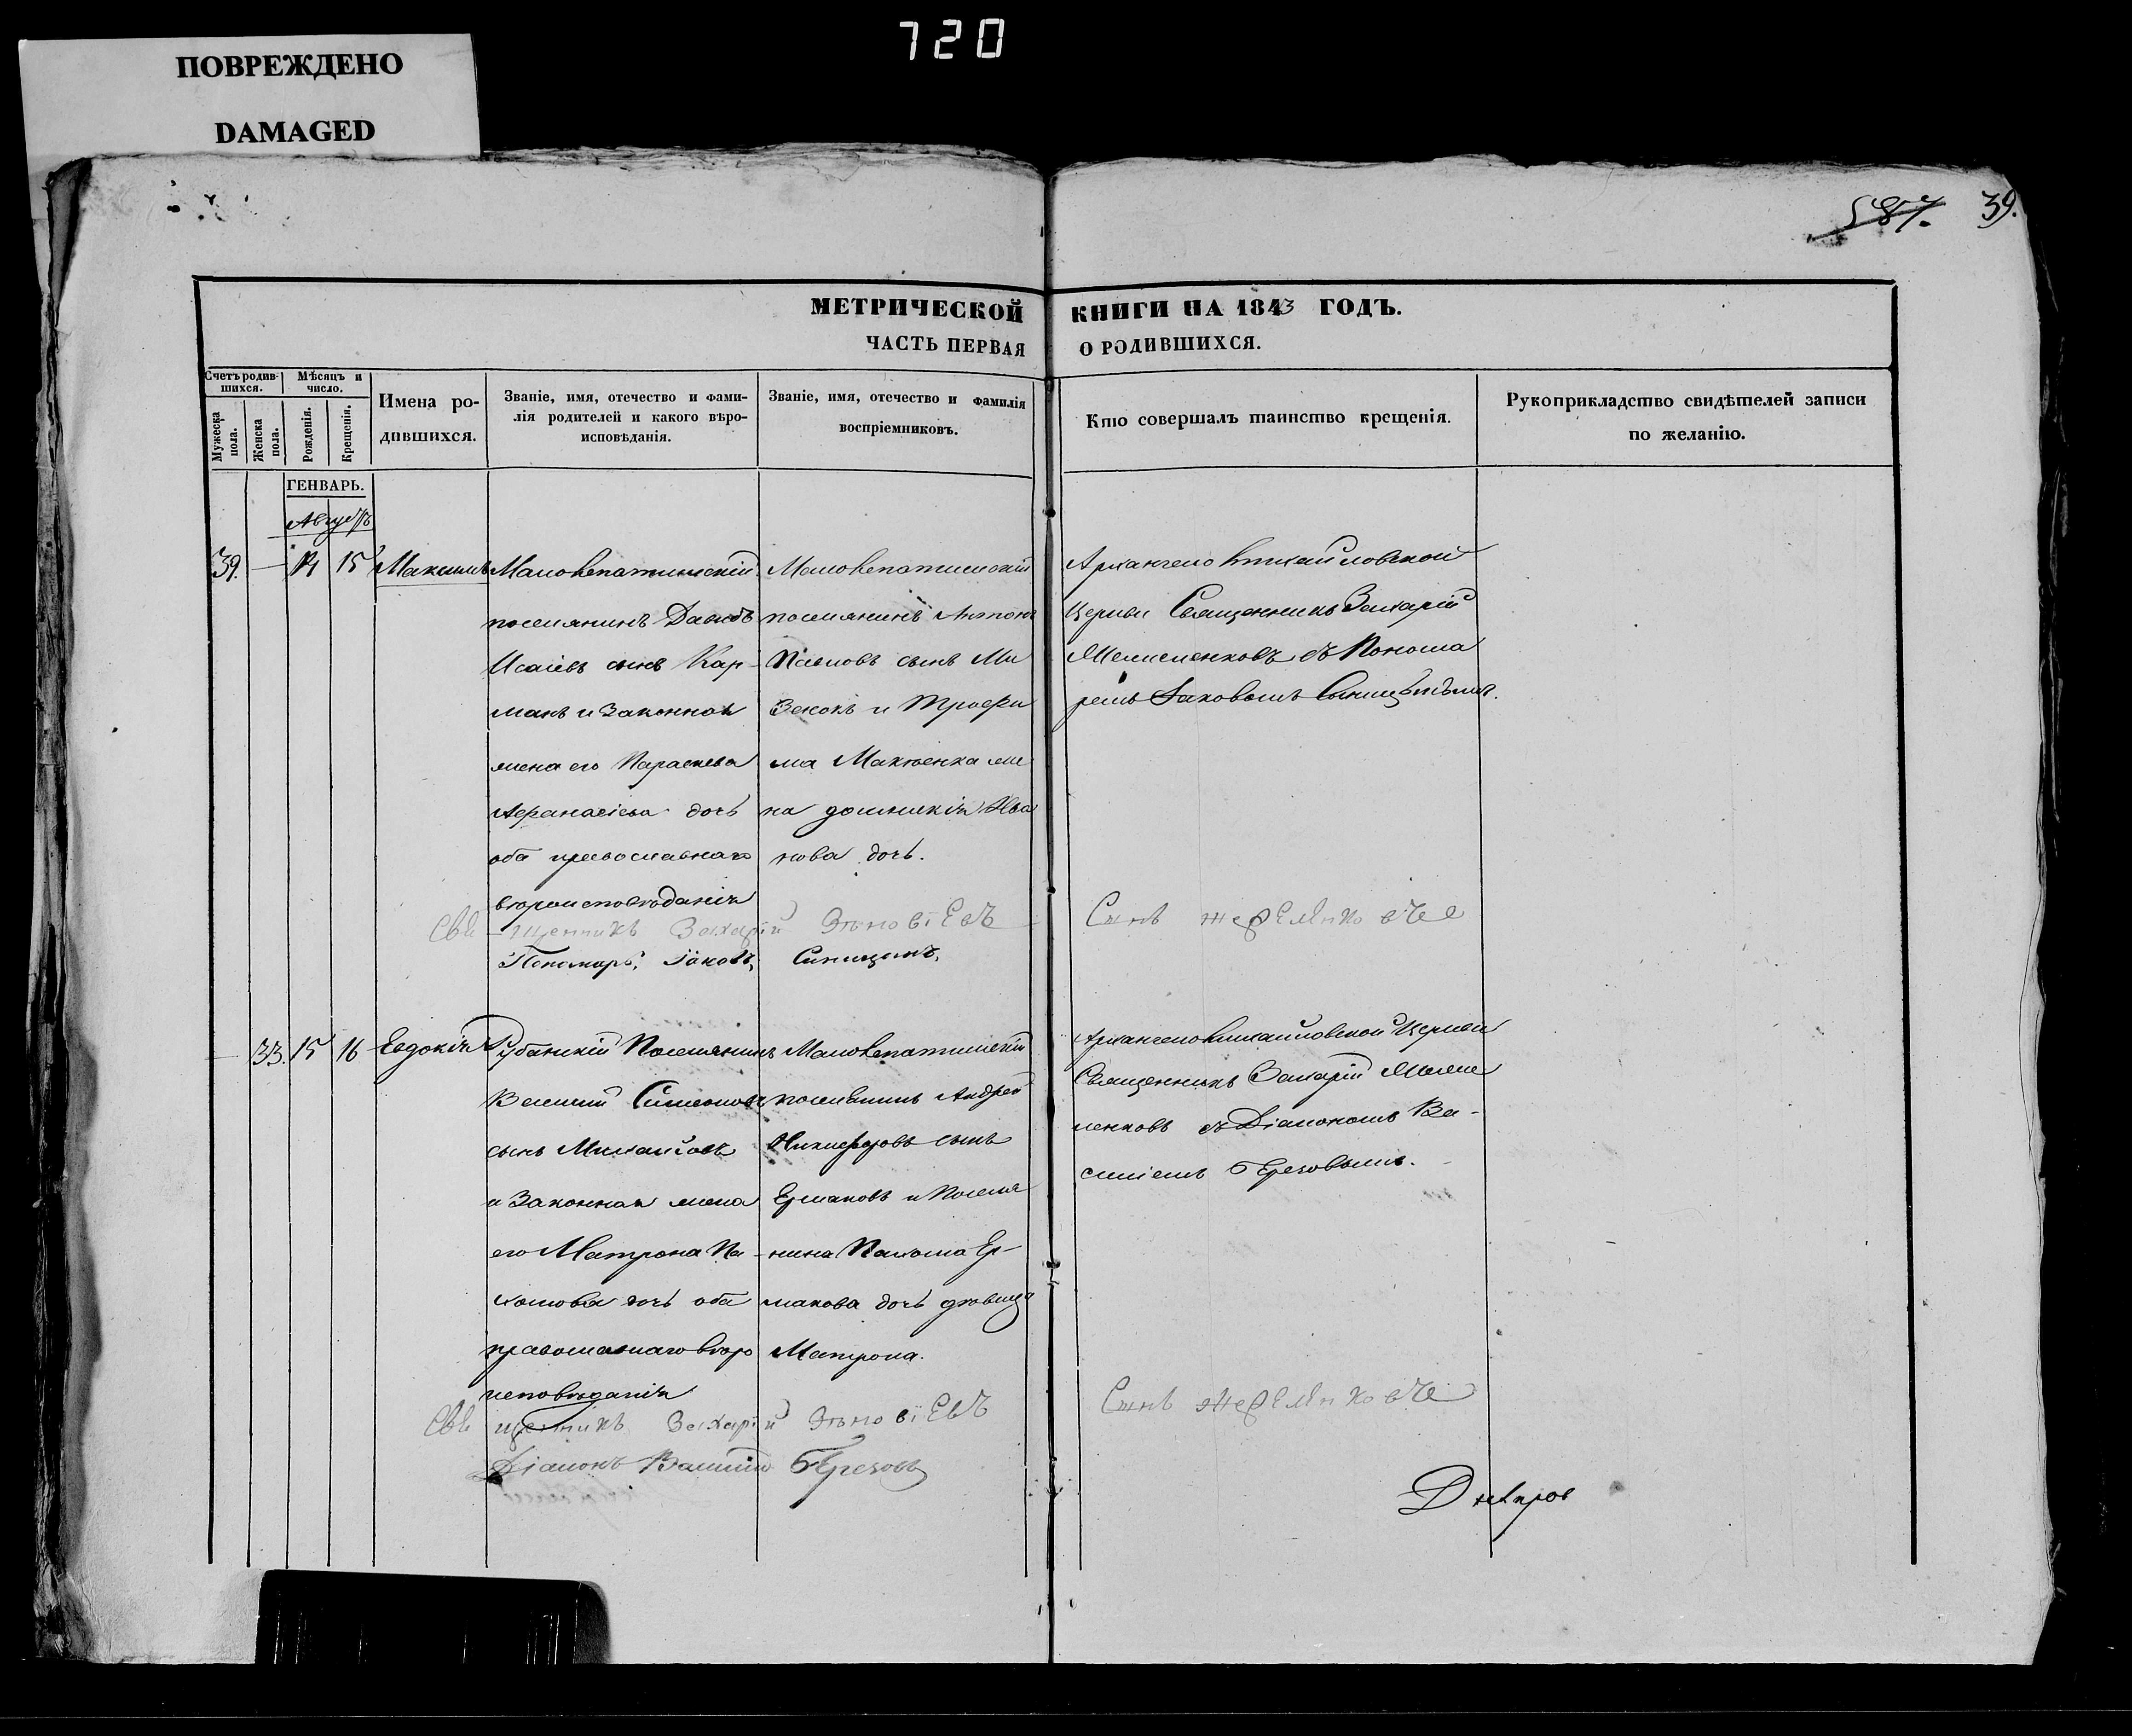 720
ПОВРЕЖДЕНО
DAMAGED
587. 39.
МЕТРИЧЕСКОЙ КНИГИ НА 1843 ГОДЪ.
ЧАСТЬ ПЕРВАЯ О РОДИВШИХСЯ.
Счетъ родив-
шихся.
Мужеска
пола.
Женска
пола.
Мѣсяцъ и
число.
Рожденія.
Крещенія.
Имена ро-
дившихся.
Званіе, имя, отечество и фами-
лія родителей и какого вѣро-
исповѣданія.
Званіе, имя, отечество и фамилія
воспріемниковъ.
Кто совершалъ таинство крещенія.
Рукоприкладство свидѣтелей записи
по желанію.
ГЕНВАРЬ.
Августъ
39. — 14 15 Максимъ
поселянинъ Давидъ
Исаіевъ сынъ Кар-
манъ и Законная
жена его Параскева
Афанасіева дочь
оба православнаго
вѣроисповѣданія
поселянинъ Антонъ
Павловъ сынъ Ми
Зенокъ и Трофи
ма Макѣенка же
на Ива
нова дочь.
Архангело Михайловской
Церкви Священникъ Захарій
съ Понома
ремъ Іаковомъ Синицынымъ.
Свя-щенникъ Захарій Зѣновіевъ Сынъ
Пономарь, Іаковъ, Синицынъ,
— 33. 15 16 Евдокія
Рубанскій Поселянинъ
Василій Симеоновъ
сынъ Михайловъ
и Законная жена
его Матрона Па-
хомова дочь оба
православнаго вѣро
исповѣданія
поселянинъ Андрей
Никифоровъ сынъ
Ермаковъ и Поселя
нина Пахома Ер-
макова дочь дѣвица
Матрона.
Архангело Михайловской Церкви
Священникъ Захарій
съ Діакономъ Ва-
силіемъ Ѣрезовымъ.
Свя щенникъ Захарій Зѣновіевъ Сынъ
Діаконъ Василій